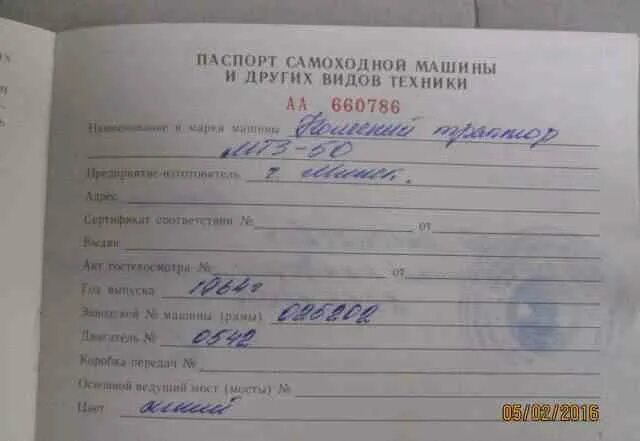 ПАСПОРТ САМОХОДНОЙ МАШИНЫ
И ДРУГИХ ВИДОВ ТЕХНИКИ
АА 660786
Наименование и марка машины Колесный трактор
МТЗ-50
Предприятие-изготовитель г. Минск.
Адрес
Сертификат соответствия № от
Выдан
Акт гостехосмотра № от
Год выпуска 1964г
Заводской № машины (рамы) 025202
Двигатель № 0542
Коробка передач №
Основной ведущий мост (мосты) №
Цвет синий
05/02/2016